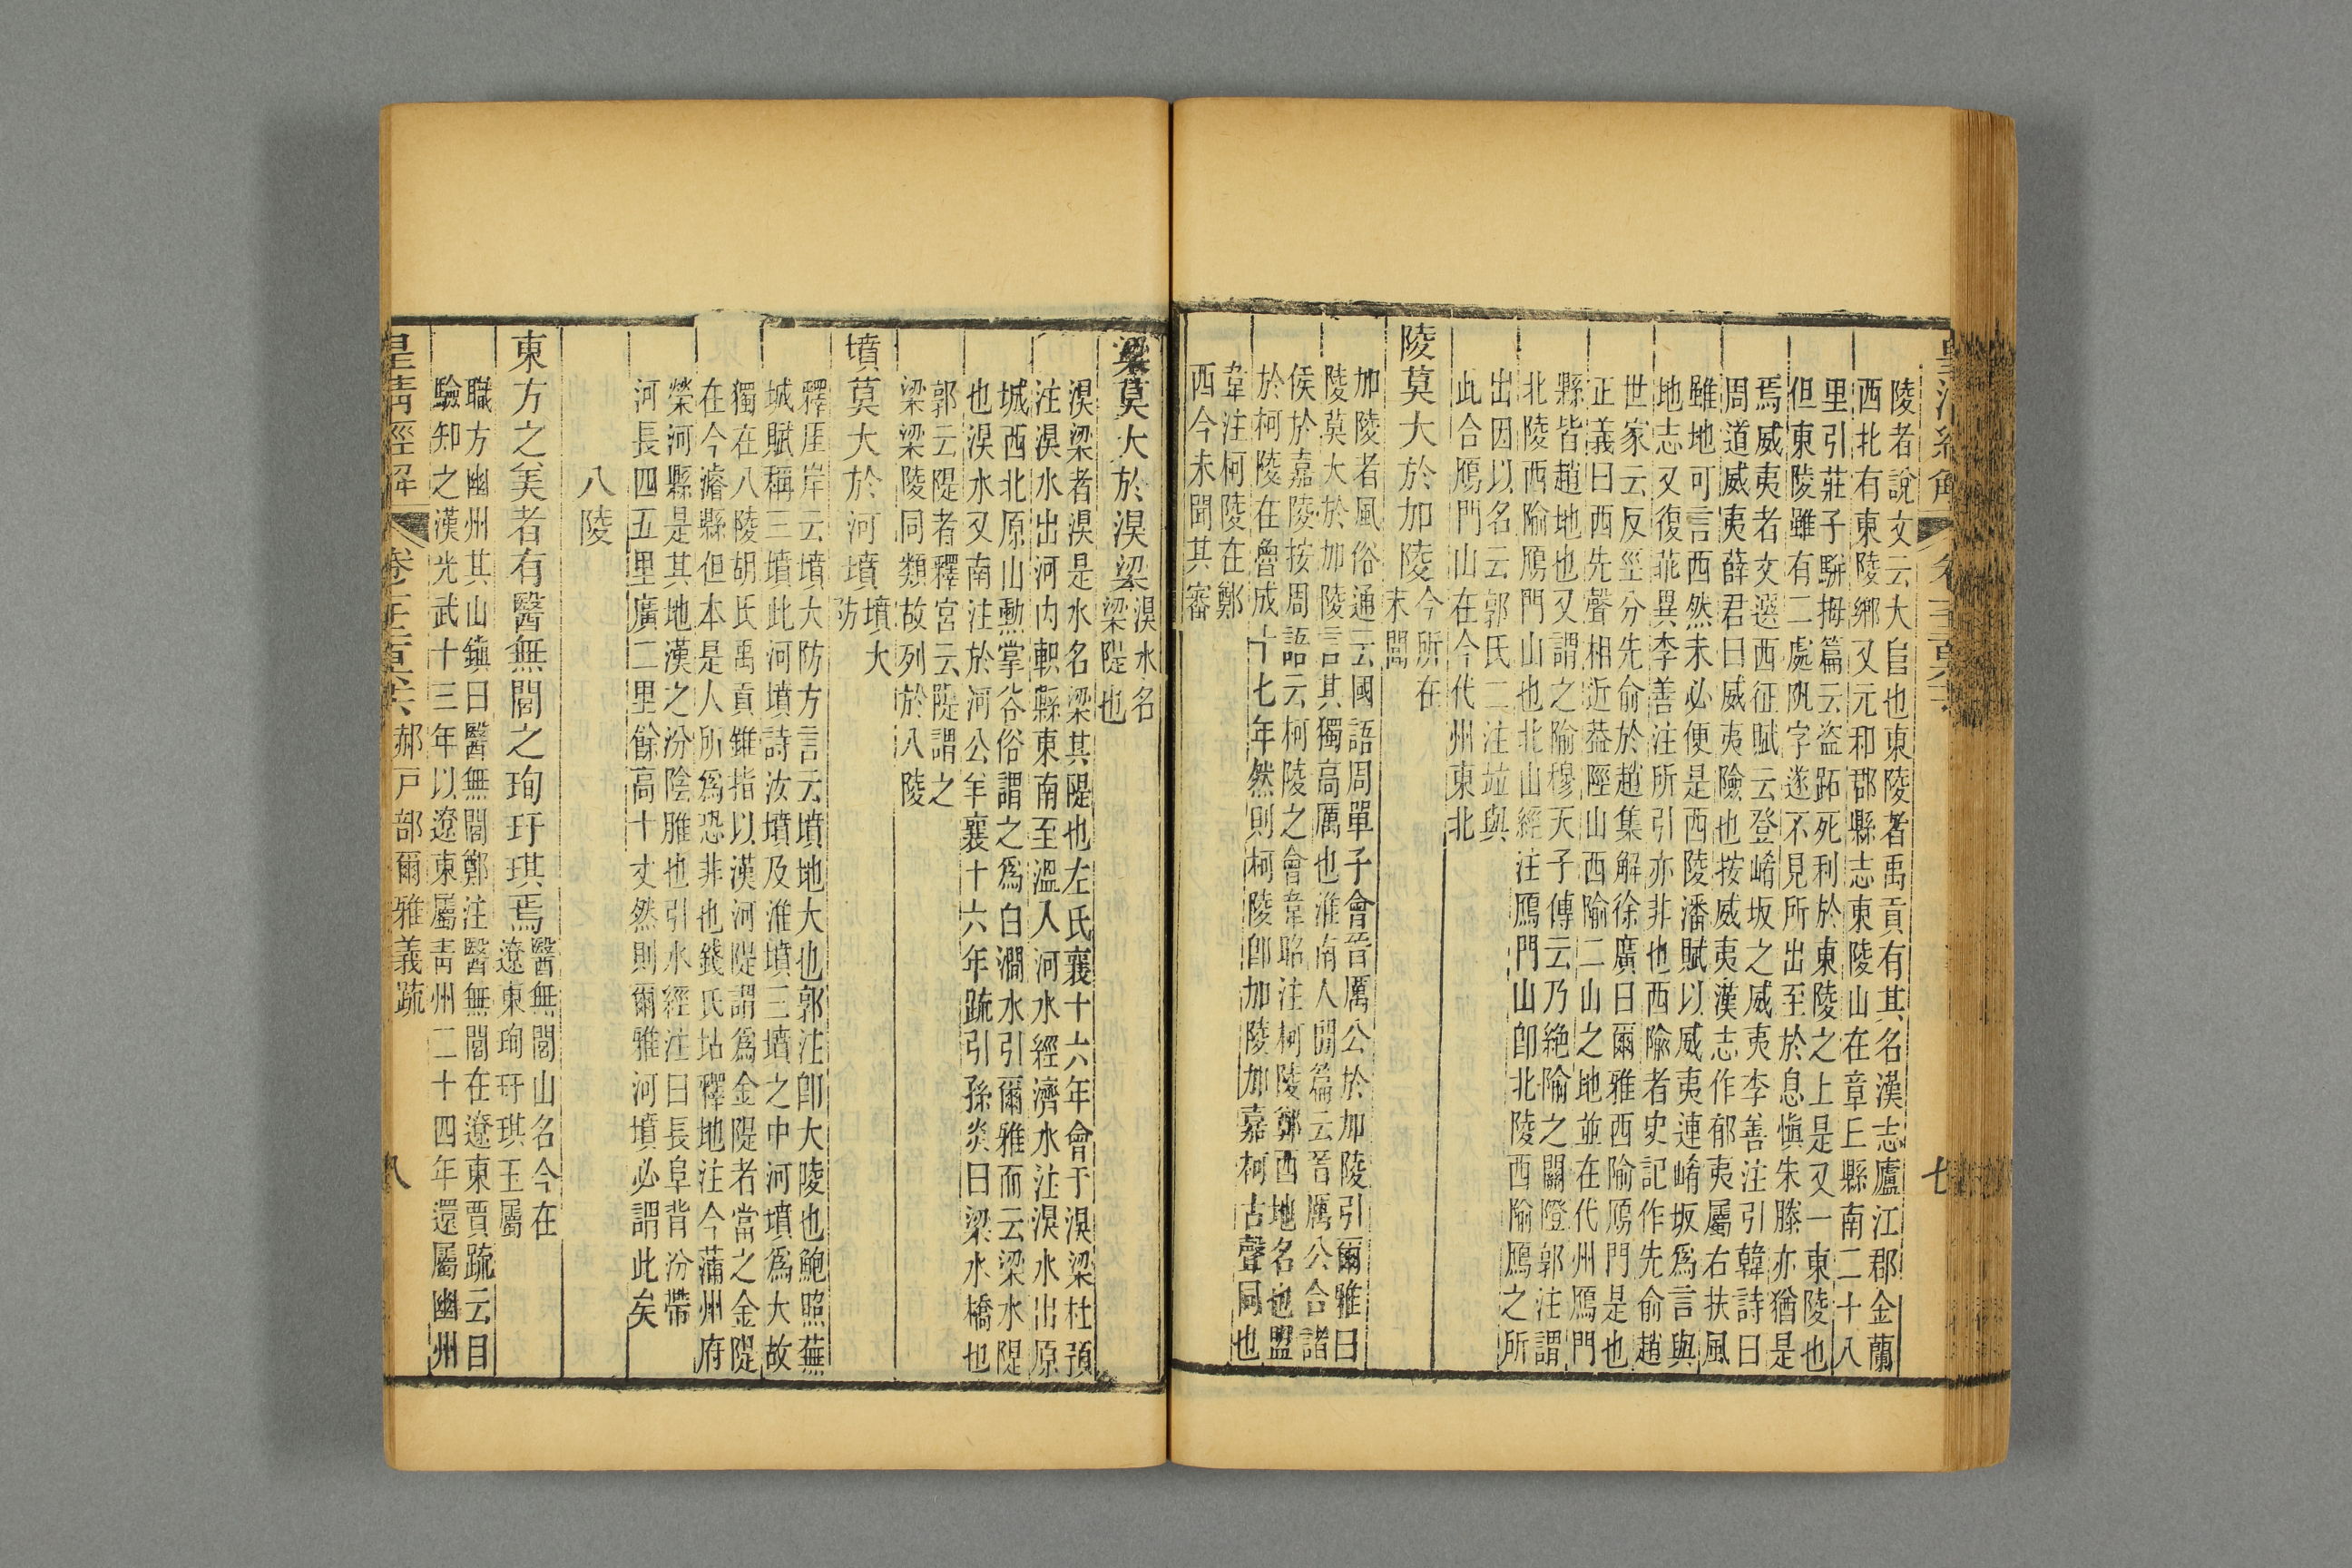 陵者說文云大𨸏也東陵者禹貢有其名漢志廬江郡金蘭
西北有東陵鄉又元和郡縣志東陵山在章丘縣南二十八
里引莊子駢拇篇云盜跖死利於東陵之上是又一東陵也
但東陵雖有二處阠字遂不見所出至於息愼朱滕亦猶是
焉威夷者文選西征賦云登崤坂之威夷李善注引韓詩曰
周道威夷薛君曰威夷險也按威夷漢志作郁夷屬右扶風
雖地可言西然未必便是西陵潘賦以威夷連崤坂爲言與
地志又復乖異李善注所引亦非也西隃者史記作先俞趙
世家云反巠分先俞於趙集解徐廣曰爾雅西隃鴈門是也
正義曰西先聲相近葢陘山西隃二山之地並在代州鴈門
縣皆趙地也又謂之隃穆天子傳云乃絶隃之關隥郭注謂
北陵西隃鴈門山也北山經注鴈門山卽北陵西隃鴈之所
出因以名云郭氏二注竝與
此合鴈門山在今代州東北
陵莫大於加陵今所在未聞
加陵者風俗通云國語周單子會晉厲公於加陵引爾雅曰
陵莫大於加陵言其獨高厲也淮南人閒篇云晉厲公合諸
侯於嘉陵按周語云柯陵之會韋昭注柯陵鄭西地名也盟
於柯陵在魯成十七年然則柯陵卽加陵加嘉柯古聲同也
韋注柯陵在鄭
西今未聞其審
梁莫大於湨梁湨水名梁隄也
湨梁者湨是水名梁其隄也左氏襄十六年會于湨梁杜預
注湨水出河內軹縣東南至溫入河水經濟水注湨水出原
城西北原山勳掌谷俗謂之爲白澗水引爾雅而云梁水隄
也湨水又南注於河公羊襄十六年疏引孫炎曰梁水橋也
郭云隄者釋宮云隄謂之
梁梁陵同類故列於八陵
墳莫大於河墳墳大防
釋厓岸云墳大防方言云墳地大也郭注卽大陵也鮑照蕪
城賦稱三墳此河墳詩汝墳及淮墳三墳之中河墳爲大故
獨在八陵胡氏禹貢錐指以漢河隄謂爲金隄者當之金隄
在今濬縣但本是人所爲恐非也錢氏坫釋地注今蒲州府
榮河縣是其地漢之汾陰脽也引水經注曰長阜背汾帶
河長四五里廣二里餘高十丈然則爾雅河墳必謂此矣
八陵
東方之美者有醫無閭之珣玗琪焉醫無閭山名今在遼東珣玗琪玉屬
職方幽州其山鎭曰醫無閭鄭注醫無閭在遼東賈疏云目
驗知之漢光武十三年以遼東屬靑州二十四年還屬幽州
皇淸經解 卷千二百六十六 郝戸部爾雅義疏 八